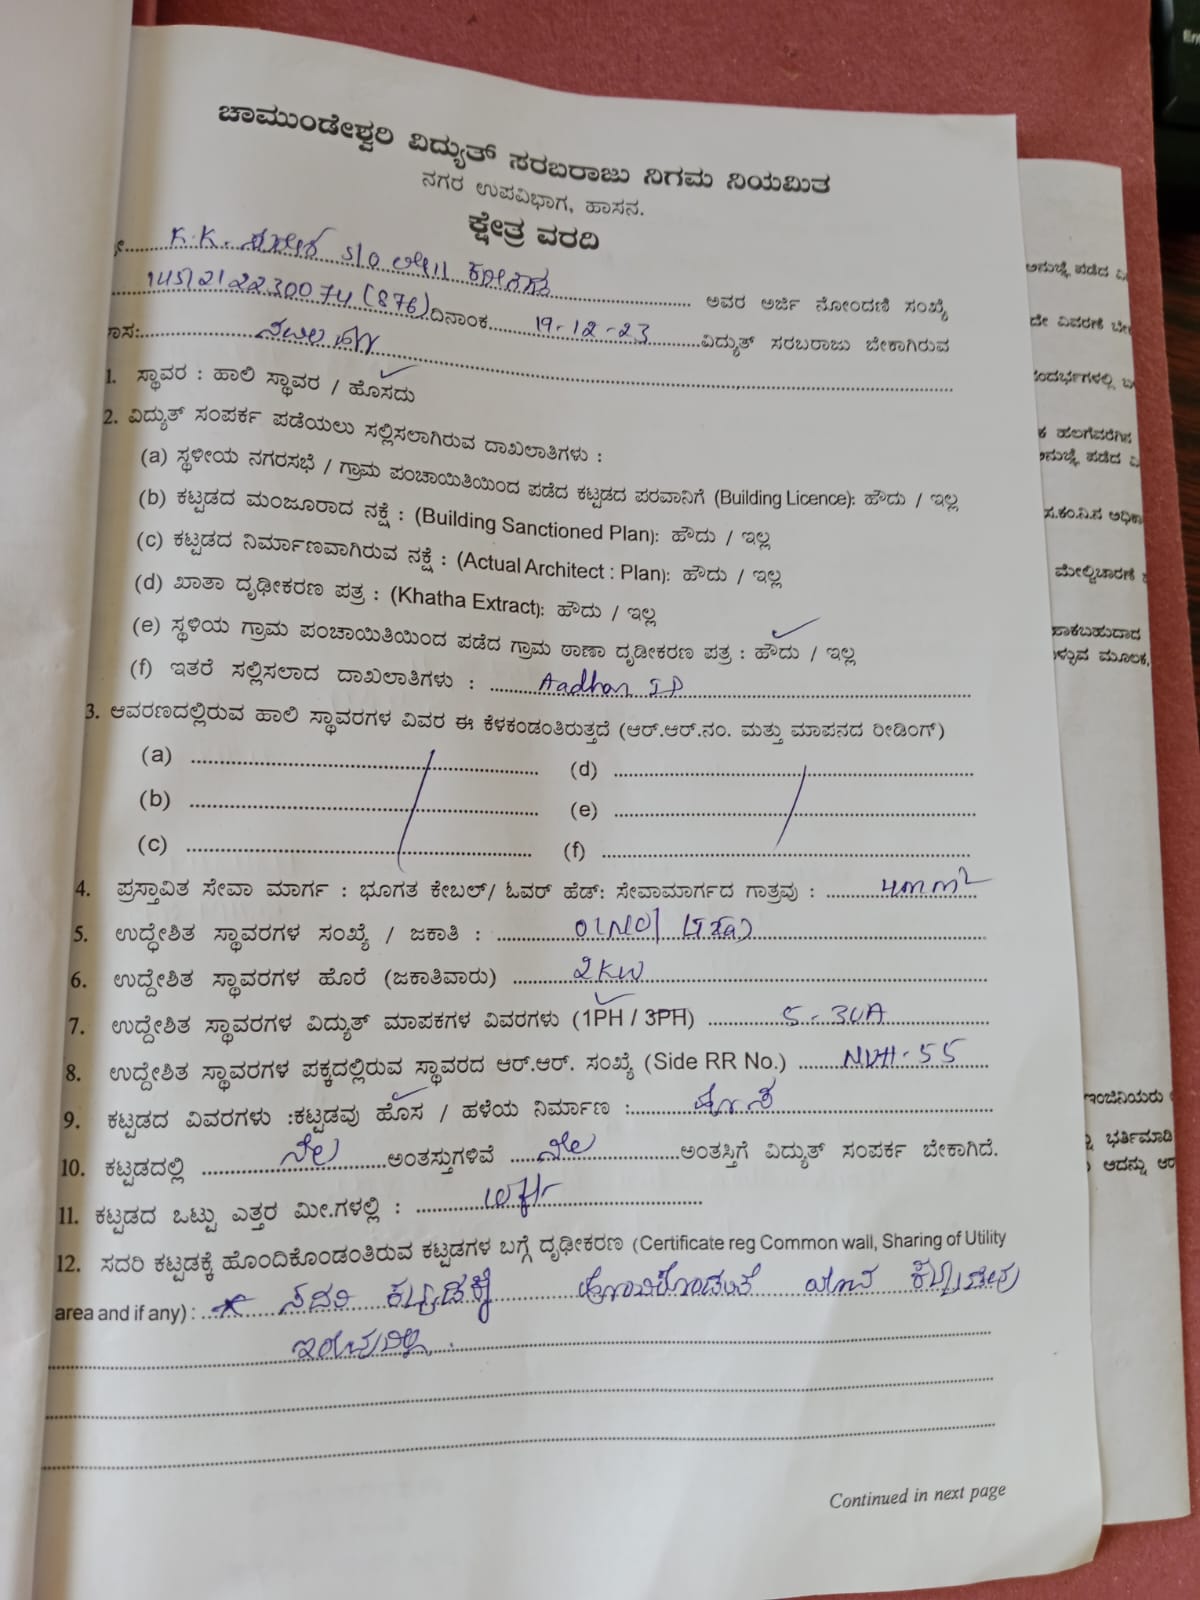 ಚಾಮುಂಡೇಶ್ವರಿ ವಿದ್ಯುತ್ ಸರಬರಾಜು ನಿಗಮ ನಿಯಮಿತ
ನಗರ ಉಪವಿಭಾಗ, ಹಾಸನ.
ಕ್ಷೇತ್ರ ವರದಿ
K.K. S/O
ಅವರ ಅರ್ಜಿ ನೋಂದಣಿ ಸಂಖ್ಯೆ
(876) ದಿನಾಂಕ 19-12-23 ವಿದ್ಯುತ್ ಸರಬರಾಜು ಬೇಕಾಗಿರುವ
1. ಸ್ಥಾವರ : ಹಾಲಿ ಸ್ಥಾವರ / ಹೊಸದು
2. ವಿದ್ಯುತ್ ಸಂಪರ್ಕ ಪಡೆಯಲು ಸಲ್ಲಿಸಲಾಗಿರುವ ದಾಖಲಾತಿಗಳು :
(a) ಸ್ಥಳೀಯ ನಗರಸಭೆ / ಗ್ರಾಮ ಪಂಚಾಯಿತಿಯಿಂದ ಪಡೆದ ಕಟ್ಟಡದ ಪರವಾನಿಗೆ (Building Licence): ಹೌದು / ಇಲ್ಲ
(b) ಕಟ್ಟಡದ ಮಂಜೂರಾದ ನಕ್ಷೆ : (Building Sanctioned Plan): ಹೌದು / ಇಲ್ಲ
(c) ಕಟ್ಟಡದ ನಿರ್ಮಾಣವಾಗಿರುವ ನಕ್ಷೆ : (Actual Architect : Plan): ಹೌದು / ಇಲ್ಲ
(d) ಖಾತಾ ದೃಢೀಕರಣ ಪತ್ರ : (Khatha Extract): ಹೌದು / ಇಲ್ಲ
(e) ಸ್ಥಳಿಯ ಗ್ರಾಮ ಪಂಚಾಯಿತಿಯಿಂದ ಪಡೆದ ಗ್ರಾಮ ಠಾಣಾ ದೃಡೀಕರಣ ಪತ್ರ : ಹೌದು / ಇಲ್ಲ
(f) ಇತರೆ ಸಲ್ಲಿಸಲಾದ ದಾಖಲಾತಿಗಳು : Aadhar ID
3. ಆವರಣದಲ್ಲಿರುವ ಹಾಲಿ ಸ್ಥಾವರಗಳ ವಿವರ ಈ ಕೆಳಕಂಡಂತಿರುತ್ತದೆ (ಆರ್.ಆರ್.ನಂ. ಮತ್ತು ಮಾಪನದ ರೀಡಿಂಗ್)
(a) (d)
(b) (e)
(c) (f)
4. ಪ್ರಸ್ತಾವಿತ ಸೇವಾ ಮಾರ್ಗ : ಭೂಗತ ಕೇಬಲ್/ ಓವರ್ ಹೆಡ್: ಸೇವಾಮಾರ್ಗದ ಗಾತ್ರವು : 4mm²
5. ಉದ್ಧೇಶಿತ ಸ್ಥಾವರಗಳ ಸಂಖ್ಯೆ / ಜಕಾತಿ :
6. ಉದ್ದೇಶಿತ ಸ್ಥಾವರಗಳ ಹೊರೆ (ಜಕಾತಿವಾರು) 2KW
7. ಉದ್ದೇಶಿತ ಸ್ಥಾವರಗಳ ವಿದ್ಯುತ್ ಮಾಪಕಗಳ ವಿವರಗಳು (1PH / 3PH) 5-30A
8. ಉದ್ದೇಶಿತ ಸ್ಥಾವರಗಳ ಪಕ್ಕದಲ್ಲಿರುವ ಸ್ಥಾವರದ ಆರ್.ಆರ್. ಸಂಖ್ಯೆ (Side RR No.) NVH-55
9. ಕಟ್ಟಡದ ವಿವರಗಳು :ಕಟ್ಟಡವು ಹೊಸ / ಹಳೆಯ ನಿರ್ಮಾಣ : ಹೊಸ
10. ಕಟ್ಟಡದಲ್ಲಿ ನೆಲ ಅಂತಸ್ತುಗಳಿವೆ ನೆಲ ಅಂತಸ್ತಿಗೆ ವಿದ್ಯುತ್ ಸಂಪರ್ಕ ಬೇಕಾಗಿದೆ.
11. ಕಟ್ಟಡದ ಒಟ್ಟು ಎತ್ತರ ಮೀ.ಗಳಲ್ಲಿ :
12. ಸದರಿ ಕಟ್ಟಡಕ್ಕೆ ಹೊಂದಿಕೊಂಡಂತಿರುವ ಕಟ್ಟಡಗಳ ಬಗ್ಗೆ ದೃಢೀಕರಣ (Certificate reg Common wall, Sharing of Utility
area and if any) : * ಸದರಿ ಕಟ್ಟಡಕ್ಕೆ ಹೊಂದಿಕೊಂಡಂತೆ ಯಾವ ಕಟ್ಟಡವು
ಇರುವುದಿಲ್ಲ.
Continued in next page